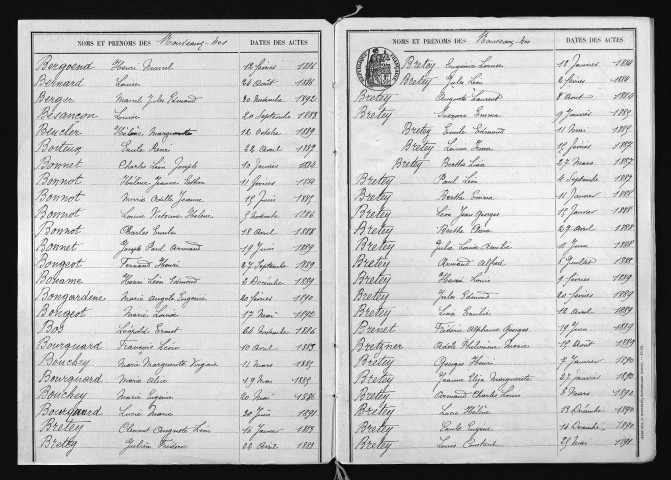 NOMS ET PRÉNOMS DES Nouveaux-nés DATES DES ACTES
Bergoend Henri Marcel 12 février 1886
Bernard Louise 26 Août 1886
Berger Marcel Jules Edmond 30 Novembre 1892
Besançon Louise 20 Septembre 1883
Beucler Hélène Marguerite 12 Octobre 1889
Boiteux Emile René 22 Avril 1892
Bonnet Charles Léon Joseph 10 Janvier 1884
Bonnot Jeanne Esther 11 février 1884
Bonnot Marie Odille Jeanne 15 Juin 1885
Bonnot Louise Victorine Hélène 5 Novembre 1886
Bonnot Charles Emile 18 Avril 1888
Bonnet Joseph Paul Armand 19 Juin 1889
Bongeot Fernand Henri 27 Septembre 1889
Bouame Henri Léon Edmond 2 Décembre 1889
Bongardene Marie Angèle Eugénie 20 février 1890
Bongeot Marie Louise 17 Mai 1890
Bos Léopold Ernest 24 Novembre 1886
Bourquard François Léon 10 Avril 1883
Bouchey Marie Marguerite Virginie 11 Mars 1885
Bourquard Marie Alice 27 Mai 1885
Bouchey Marie Eugénie 20 Mai 1886
Bourquard Lucie Marie 30 Juin 1891
Bretey Clément Auguste Léon 16 Janvier 1883
Bretey Julien Frédéric 22 Avril 1883
NOMS ET PRÉNOMS DES Nouveaux-nés DATES DES ACTES
Bretey Eugénie Louise 12 Janvier 1884
Bretey Jules Léon 2 février 1884
Bretey Auguste Laurent 8 Août 1884
Bretey Suzanne Emma 9 Janvier 1885
Bretey Emile Edmond 11 Mai 1885
Bretey Louise Emma 15 février 1887
Bretey Berthe Lina 27 Mars 1887
Bretey Paul Léon 4 Septembre 1887
Bretey Berthe Emma 11 Janvier 1888
Bretey Léon Jean Georges 15 Janvier 1888
Bretey Berthe 27 Avril 1888
Bretey Julie Louise Amélie 11 Juin 1888
Bretey Armand Alfred 5 Juillet 1888
Bretey Henri Louis 9 février 1889
Bretey Jules Edmond 20 février 1889
Bretey Lina Emilie 12 Avril 1889
Brenet Frédéric Alphonse Georges 19 Juin 1889
Bretzner Adèle Philomène 15 Août 1889
Bretey Georges Henri 7 Janvier 1890
Bretey Jeanne Eliza Marguerite 27 Janvier 1890
Bretey Armand Charles Louis 8 Mars 1890
Bretey Lucie Hélène 13 Décembre 1890
Bretey Emile Eugène 14 Décembre 1890
Bretey Louis Constant 25 Mai 1891